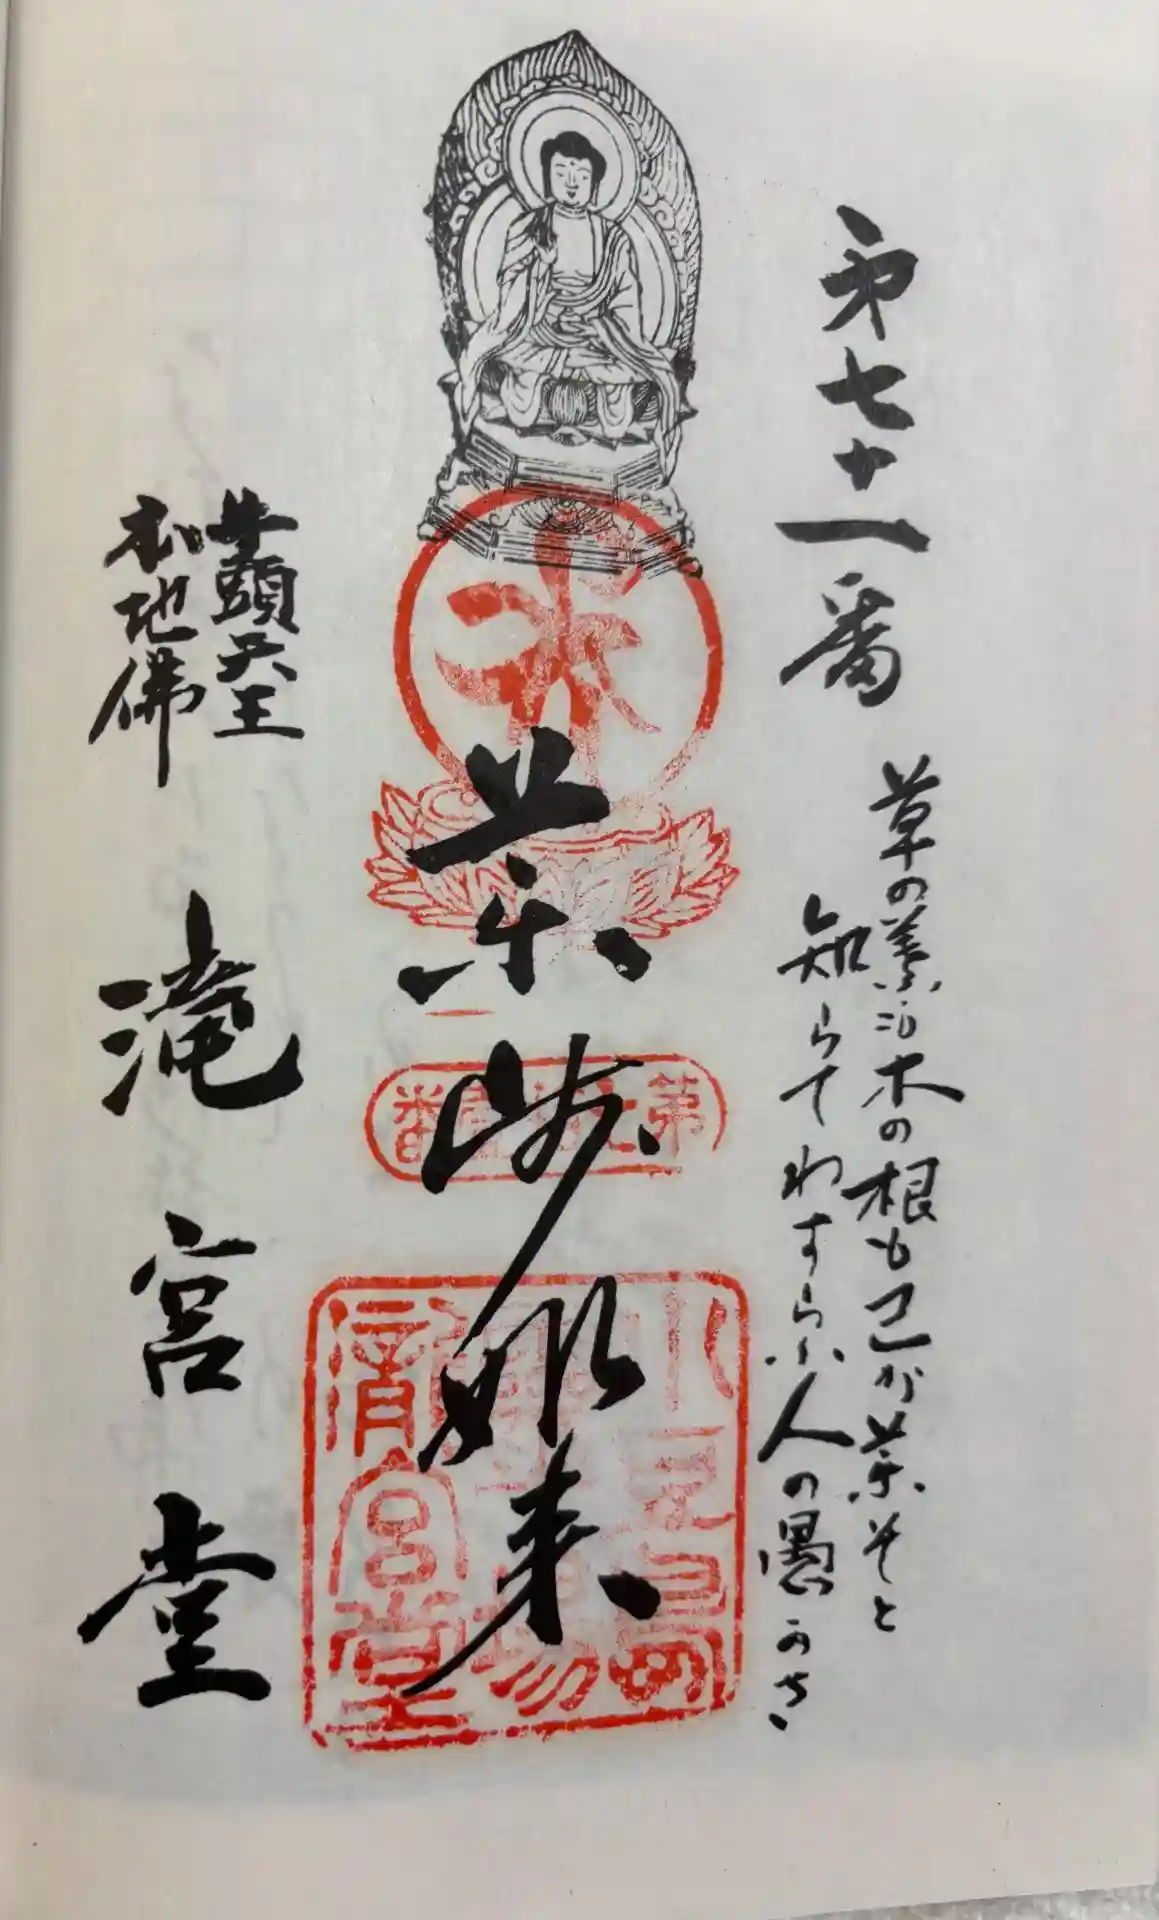 第七十一番
草の葉も木の根も己が薬そと
知らてわすらふ人の愚かさ
薬師如来
第七十壹番
小豆島
霊場
瀧宮堂
牛頭天王
本地佛
滝宮堂